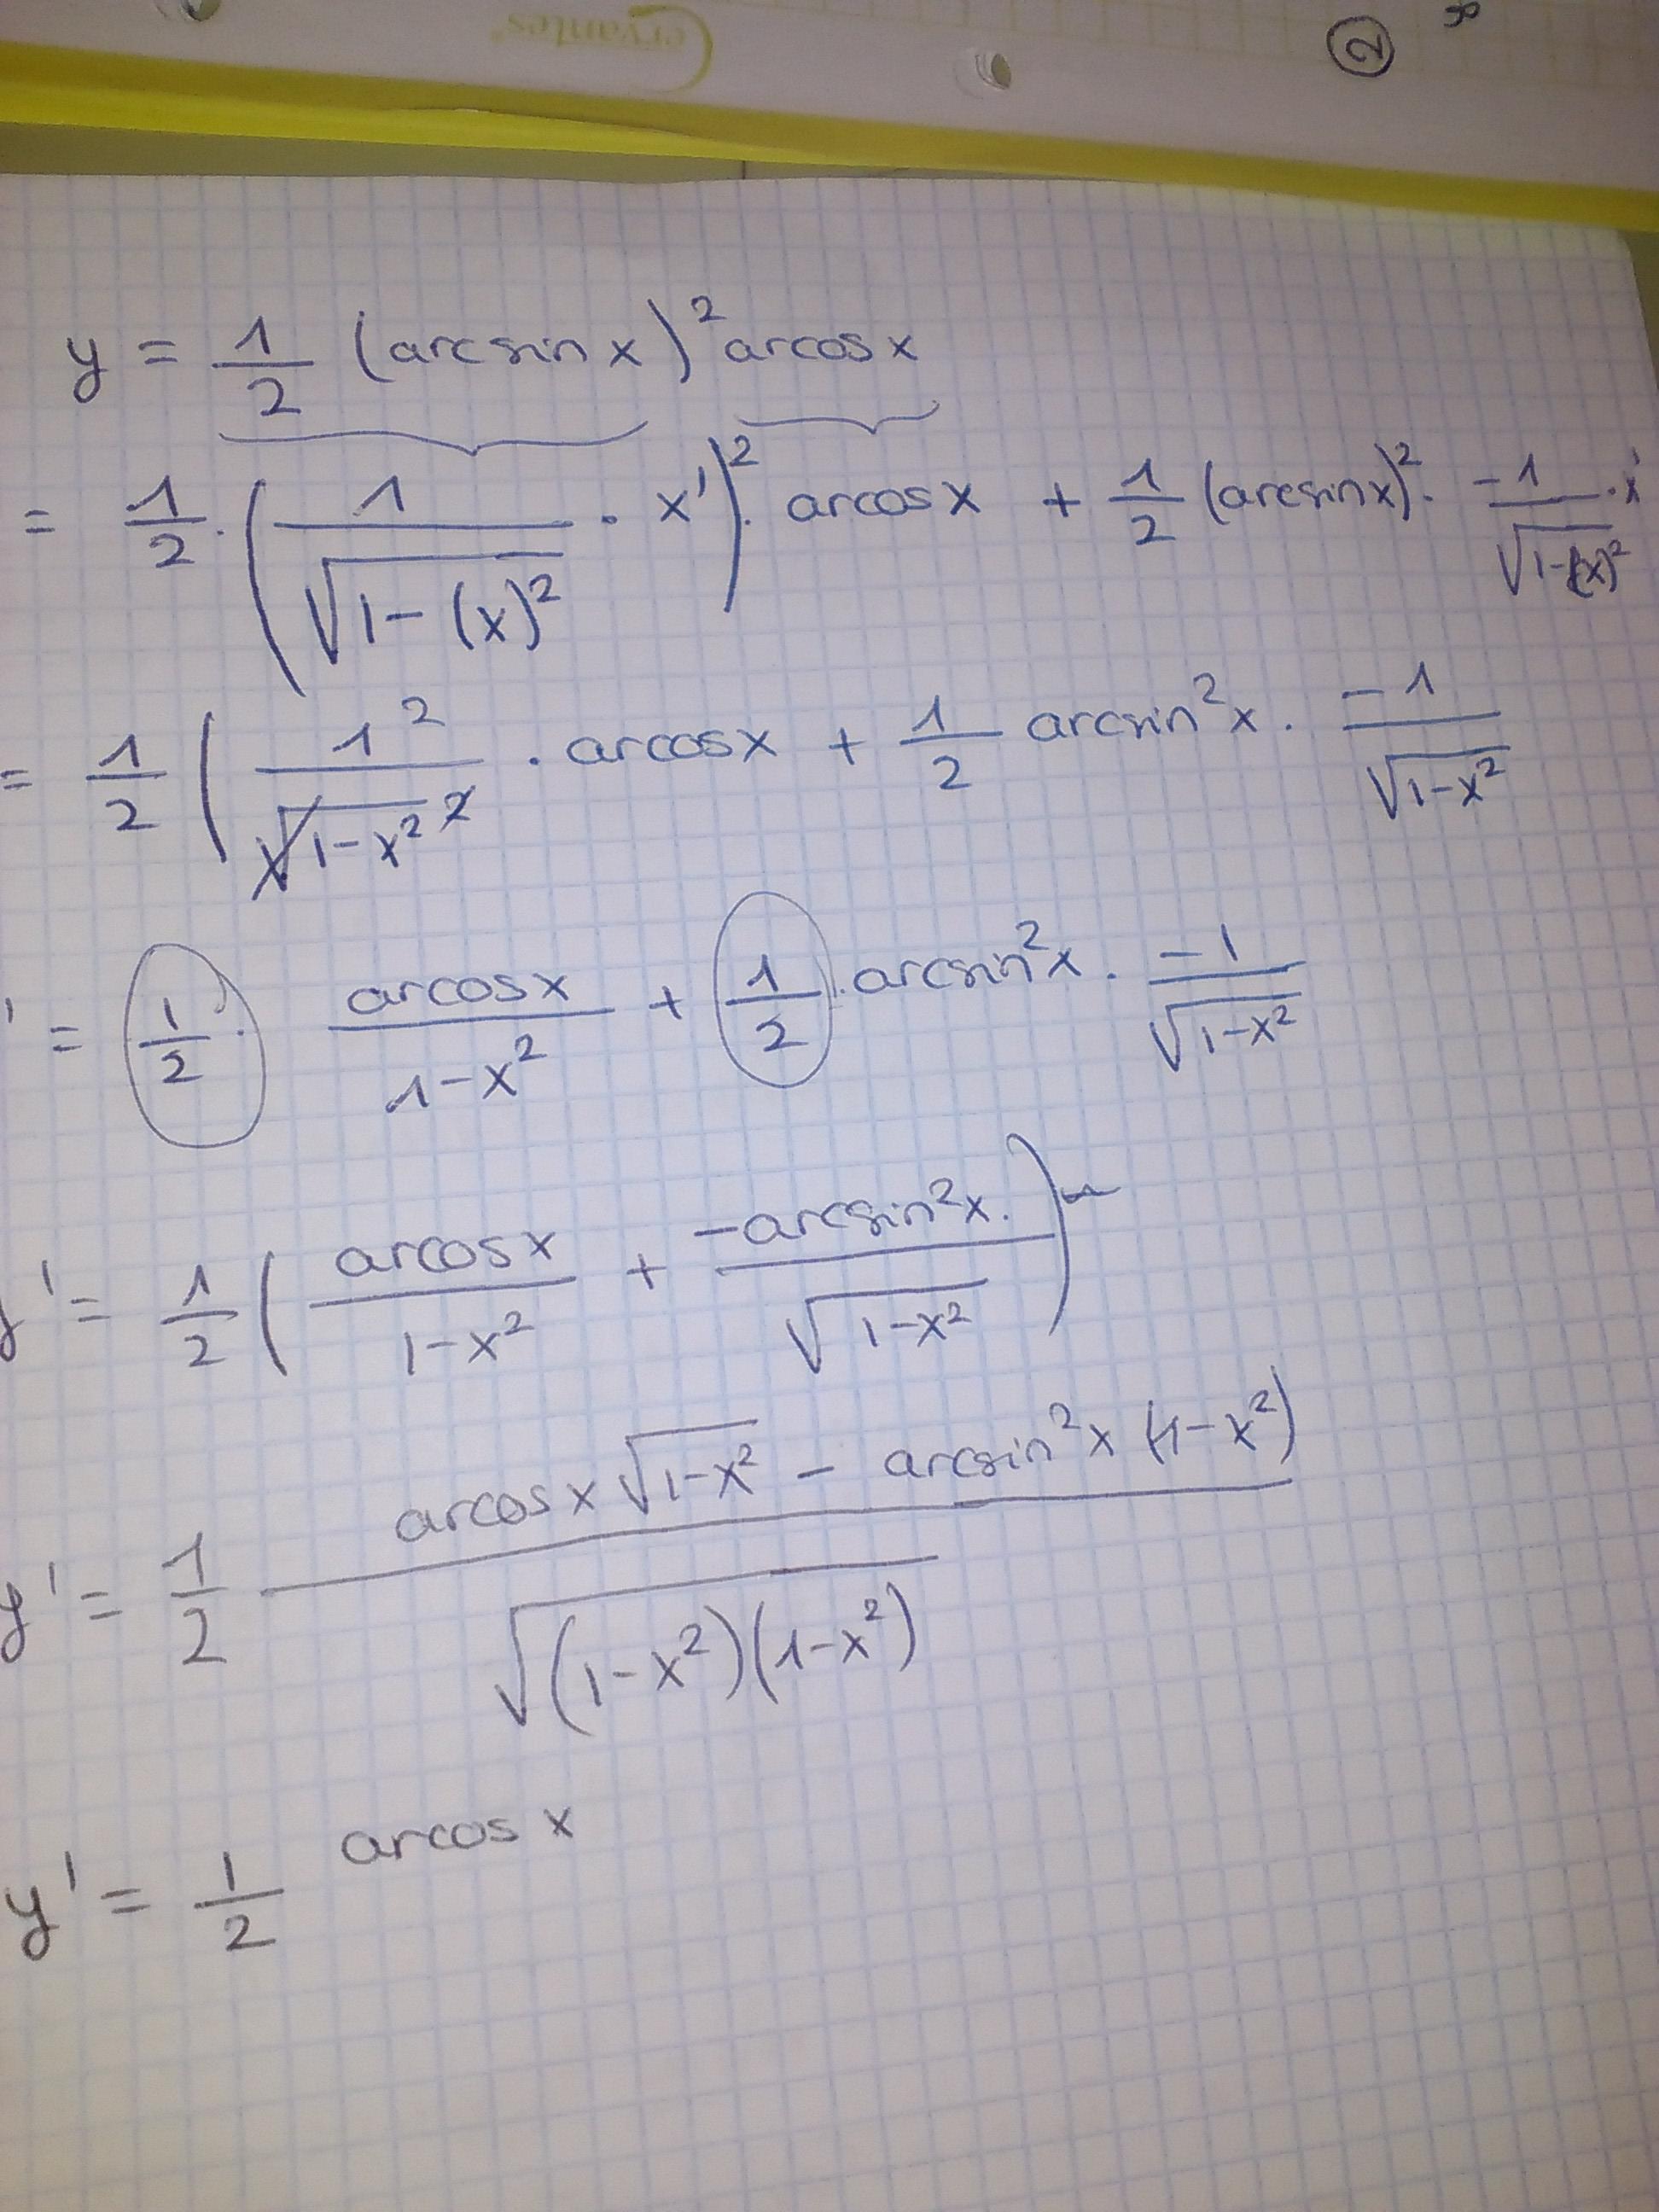 Cervantes
2
8
y = 1/2 (arcsin x)² arcos x
= 1/2 · (1/√(1-(x)²) · x')² · arcos x + 1/2 (arcsin x)² · -1/√(1-(x)²) · x'
= 1/2 ( 1²/√(1-x²)² · arcos x + 1/2 arcsin² x · -1/√(1-x²)
' = 1/2 · arcos x/(1-x²) + 1/2 · arcsin² x · -1/√(1-x²)
y' = 1/2 ( arcos x/(1-x²) + -arcsin² x ·/√(1-x²) )
y' = 1/2 (arcos x √(1-x²) - arcsin² x (1-x²))/√((1-x²)(1-x²))
y' = 1/2 arcos x